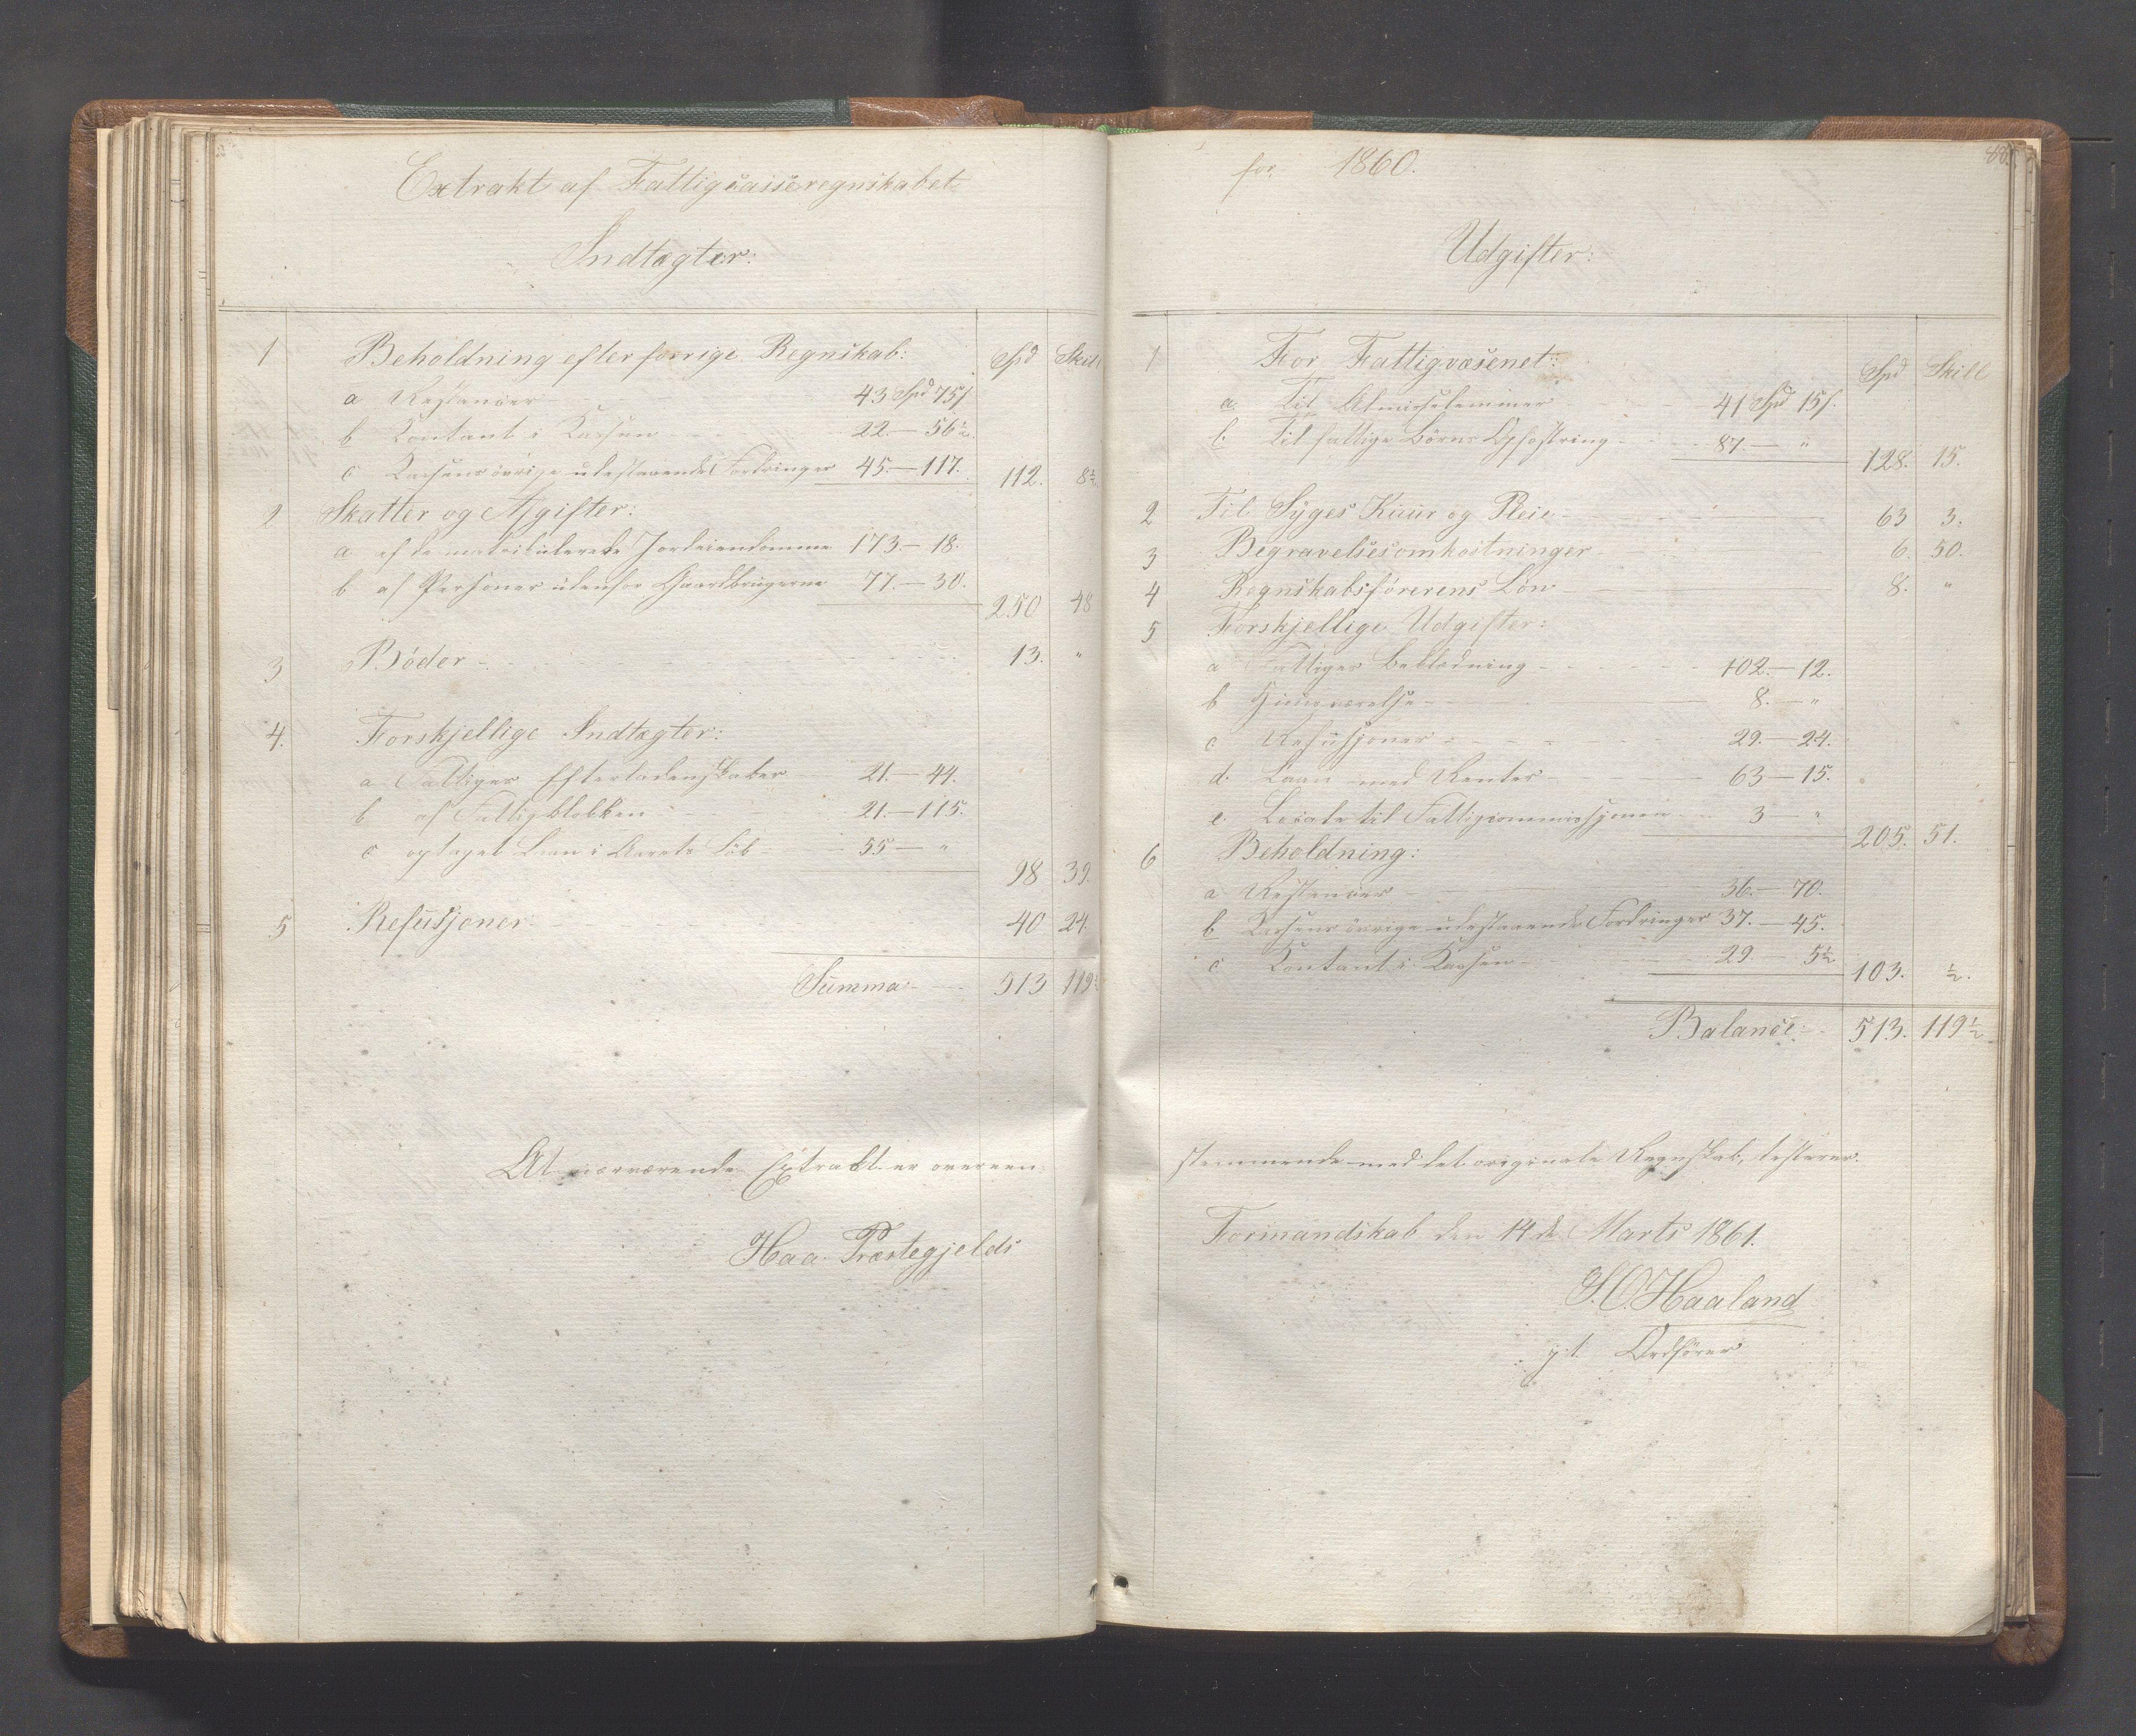 Extrakt af Fattigcasseregnskabet
Indtægter:
Spd Skill
1 Beholdning efter forrige Regnskab:
a Restancer 43 Spd 75 s
b Contant i Kassen 22. — 56½.
c Kassens övrige udestaaende Fordringer 45. — 117. 112. 8½
2 Skatter og Afgifter:
a af de matrikulerede Jordeiendomme 173. — 18.
b af Personer udenfor Gaardbrugerne 77. — 30. 250 48
3 Böder 13. "
4. Forskjellige Indtægter:
a Fattiges Efterladenskaber 21. — 44.
b af Fattigblokken 21. — 115.
c optaget Laan i Aarets Löb 55 — " 98 39.
5 Refusjoner 40 24.
Summa 513 119½
At nærværende Extrakt er overeen
Haa Præstegjelds
for 1860.
Udgifter:
Spd Skill
1 For Fattigvæsenet:
a Til Almisselemmer 41 Spd 15 s.
b. Til fattige Börns Opfostring 87. — " 128. 15.
2 Til Syges Kuur og Pleie 63 3.
3 Begravelsesomkostninger 6. 50.
4 Regnskabsförerens Lön 8. "
5 Forskjellige Udgifter:
a Fattiges Beklædning 102. — 12.
b Huusværelse 8. — "
c Refusjoner 29. — 24.
d. Laan med Renter 63 — 15.
e. Locale til Fattigcommissjonen 3 — " 205. 51.
6 Beholdning:
a Restancer 36. — 70.
b Kassens övrige udestaaende Fordringer 37. — 45.
c Contant i Kassen 29. — 5½ 103. ½.
Balance: 513. 119½
stemmende med det originale Regnskab, testerer.
Formandskab den 14de Marts 1861.
Haaland
p.t. Ordförer